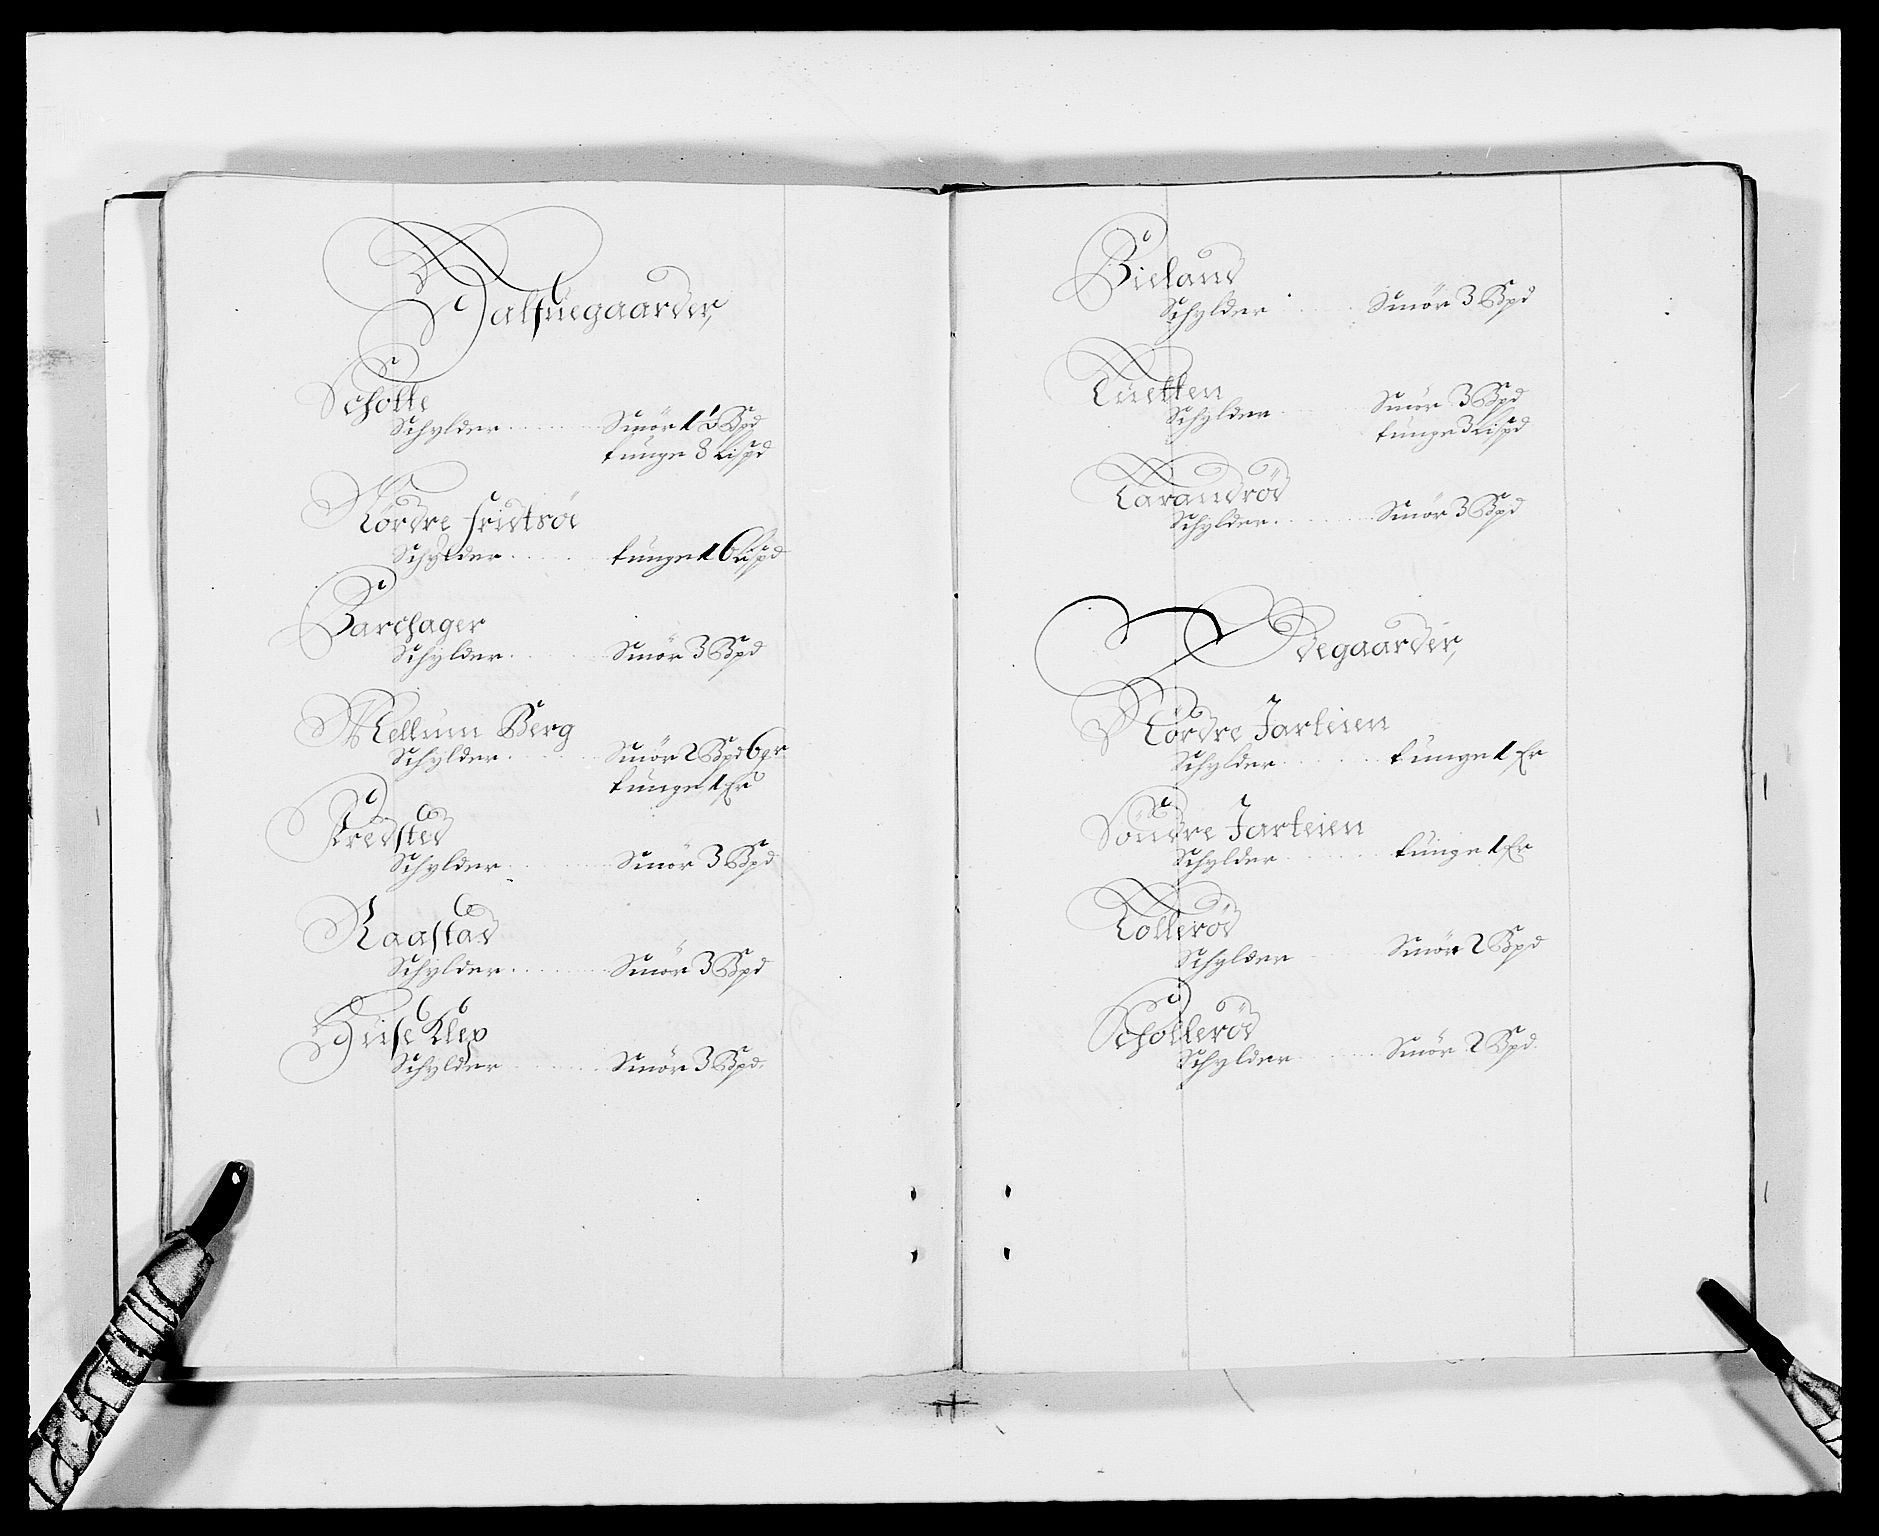 Halfuegaarder,
Scholte
Schylder ...... Smör 1½ Bpd
tunge 8 Lispd
Nordre fridtsöe
Schylder ...... tunge 16 Lispd
Barchager
Schylder ...... Smör 3 Bpd
Mellum Berg
Schylder ...... Smör 2 Bpd 6 gr
tunge 1 Er
Fredsted
Schylder ...... Smör 3 Bpd
Raastad
Schylder ...... Smör 3 Bpd
Huse Klep
Schylder ...... Smör 3 Bpd.
Bieland
Schylder ...... Smör 3 Bpd
Tuetten
Schylder ...... Smör 3 Bpd
tunge 3 Lispd
Tarandröd
Schylder ...... Smör 3 Bpd
Ödegaarder,
Nordre Jarteien
Schylder ...... tunge 1 Er
Söndre Jarteien
Schylder ...... tunge 1 Er
Tolleröd
Schylder ...... Smör 2 Bpd
Scholleröd
Schylder ...... Smör 2 Bpd